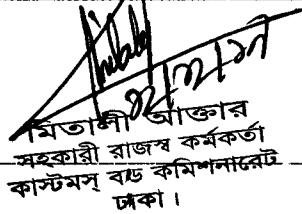 মিতালী আক্তার
সহকারী রাজস্ব কর্মকর্তা
কাস্টমস্ বন্ড কমিশনারেট
ঢাকা ।